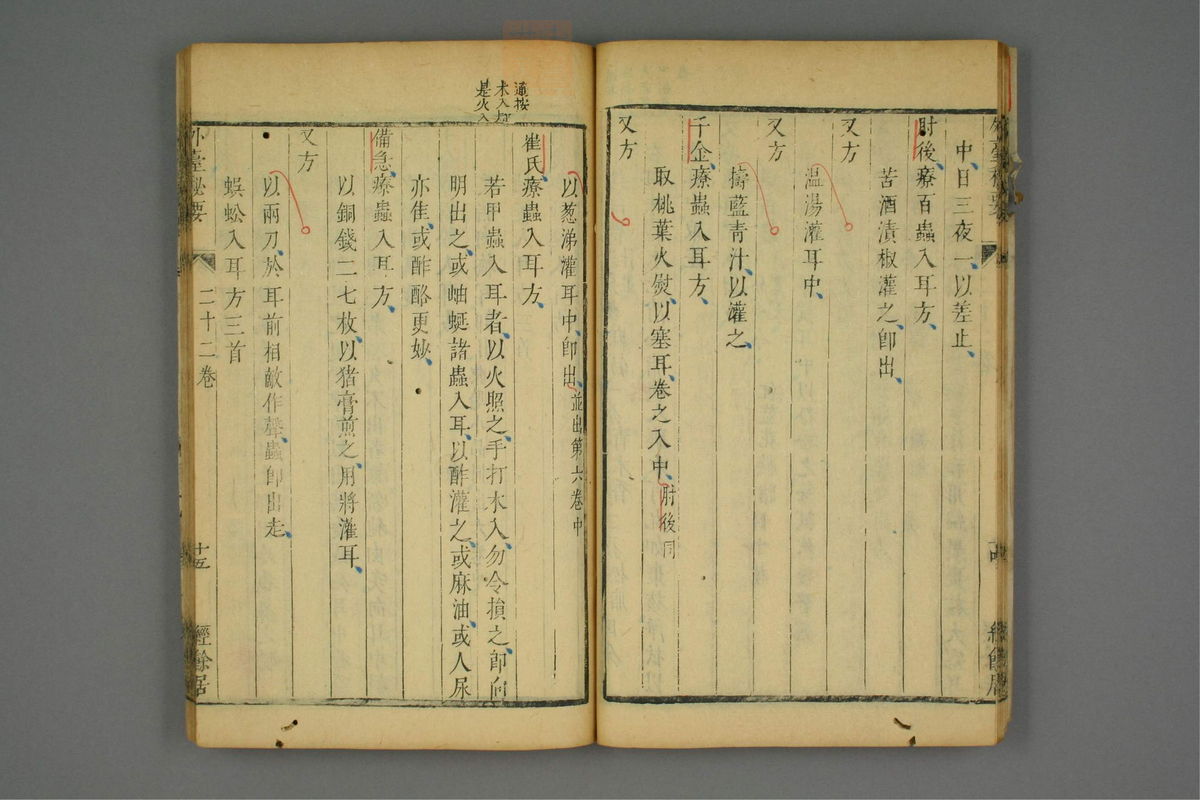 中日三夜一以差止
肘後療百蟲入耳方
苦酒漬椒灌之卽出
又方
溫湯灌耳中
又方
擣藍青汁以灌之
千金療蟲入耳方
取桃葉火熨以塞耳卷之入中肘後同
又方
以葱涕灌耳中卽出並出第六卷中
崔氏療蟲入耳方
若甲蟲入耳者以火照之手打木入勿令損之卽向
明出之或蚰蜒諸蟲入耳以酢灌之或麻油或人尿
亦佳或酢酪更妙
備急療蟲入耳方
以銅錢二七枚以猪膏煎之用將灌耳
又方
以兩刀於耳前相敵作聲蟲卽出走
蜈蚣入耳方三首
外臺秘要
二十二卷
十五
經餘居
衍按
木入
是火入